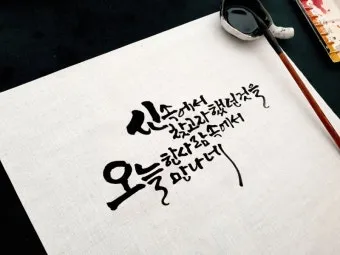 신속에서
찾고자했던것을
오늘한사람속에서
만나네